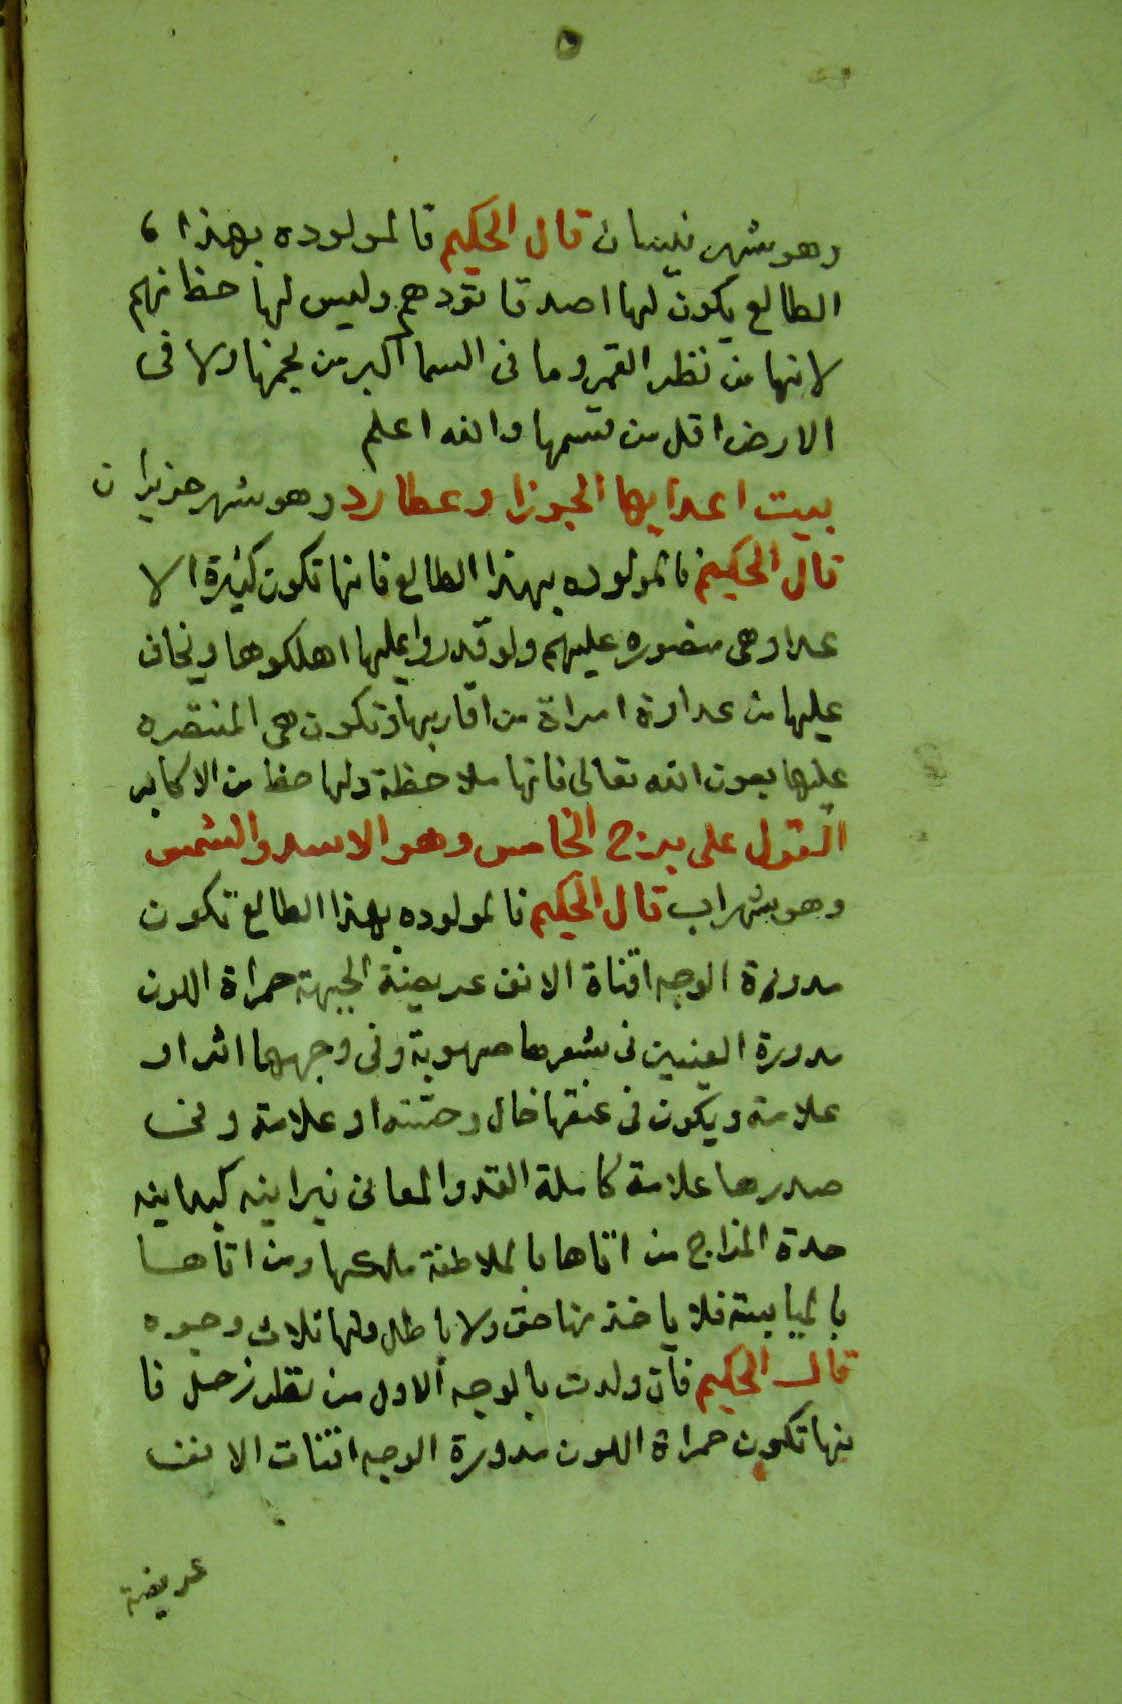 وهو شهر نيسان قال الحكيم فالمولوده بهذا
الطالع يكون لها اصدقا تودهم وليس لها حظ منهم
لانها من نظر القمر وما فى السما اكبر من نجمها ولا فى
الارض اقل من قسمها والله اعلم
بيت اعدايها الجوزا وعطارد وهو شهر حزيران
قال الحكيم فالمولوده بهذا الطالع فانها تكون كثيرة الا
عدا وهى منصوره عليهم ولو قدروا عليها اهلكوها ويخاف
عليها من عداوة امراة من اقاربها وتكون هى المنتصره
عليها بعون الله تعالى فانها ملاحظة ولها حظ من الاكابر
القول على برج الخامس وهو الاسد والشمس
وهو شهر اب قال الحكيم فالمولوده بهذا الطالع تكون
مدورة الوجه اقناة الانف عريضة الجبهة حمراة اللون
مدورة العينين فى شعرها صهوبة وفى وجهها اثر او
علامة ويكون فى عنقها خال وحسنه او علامة وفى
صدرها علامة كاملة القد والمعانى نيرانيه كبدانيه
حدة المزاج من اتاها بالملاطفة ملكها ومن اتاها
باليابسة فلا ياخذ منها حق ولا باطل ولها ثلاث وجوه
قال الحكيم فان ولدت بالوجه الاول من نظر زحل فا
نها تكون حمراة اللون مدورة الوجه اقنات الانف
عريضة